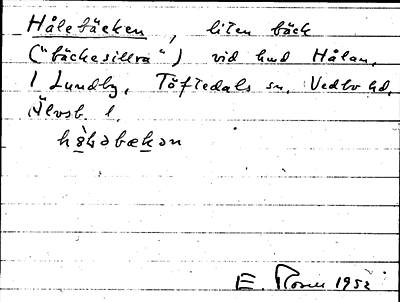 Hålebäcken, liten bäck
("bäckesillra") vid hmd Hålan,
1 Lundby, Töftedals sn, Vedbo hd,
Älvsb. l.
E. Rosell 1952